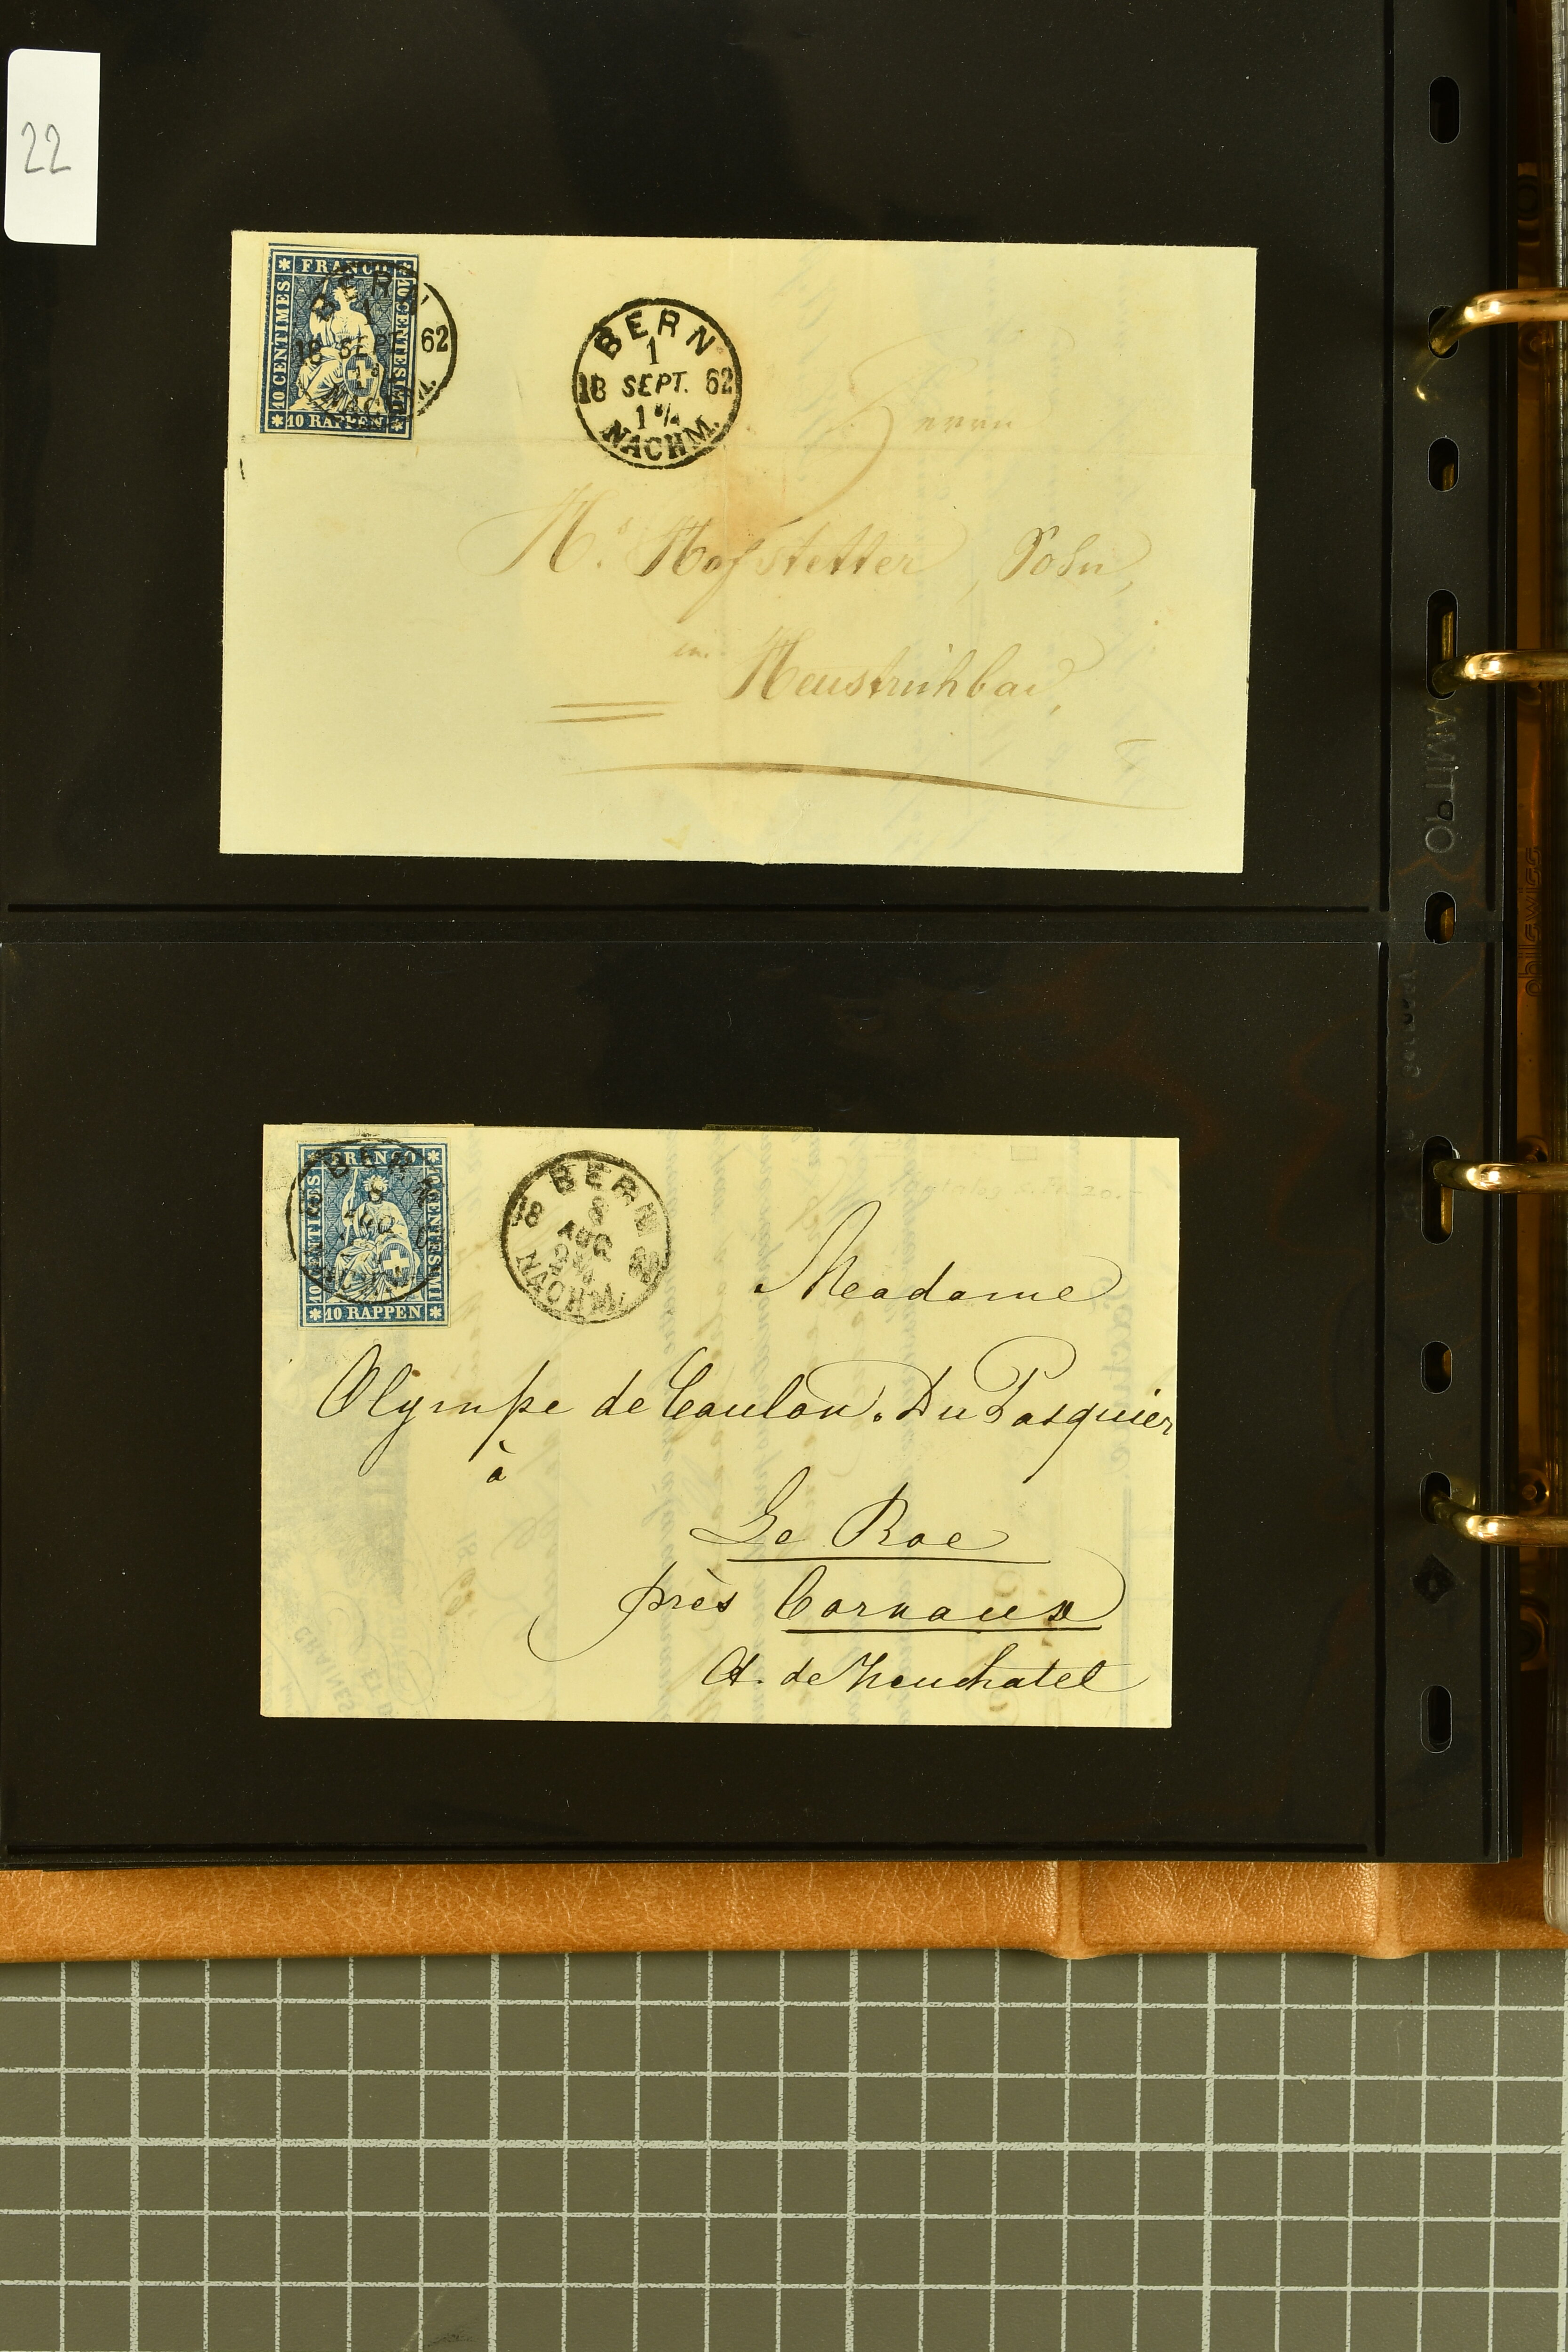 22
FRANCO
10 CENTIMES
10 RAPPEN
BERN
1
18 SEPT. 62
BERN
1
18 SEPT. 62
1¾
NACHM.
Herrn
Hofstetter, Sohn,
in
FRANCO
10 CENTIMES
10 CENTESIMI
10 RAPPEN
BERN
8
BERN
18
8
AUG
NACHM
Madame
Olympe de Coulon. DuPasquier
à
Le Roc
près Cornaux
Ct. de Neuchatel
OPTIMA